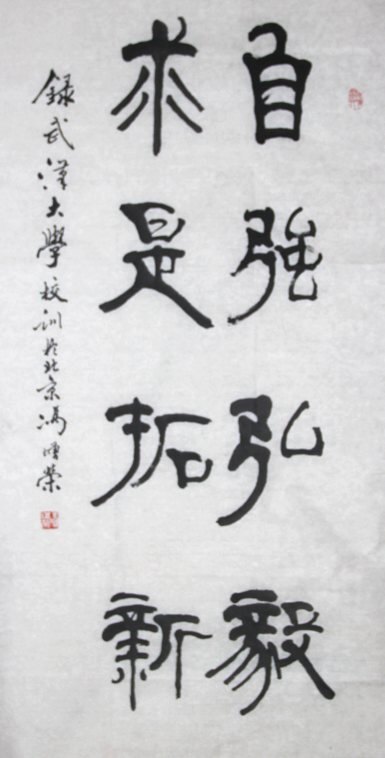 自強弘毅
求是拓新
録武漢大學校訓於北京馮
榮